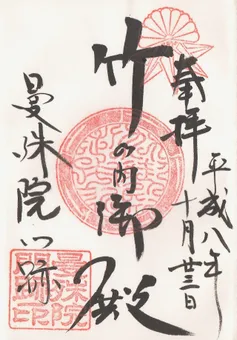 奉拝
平成八年
十月廿三日
竹の内御殿
曼殊院門跡
曼殊院
門跡印